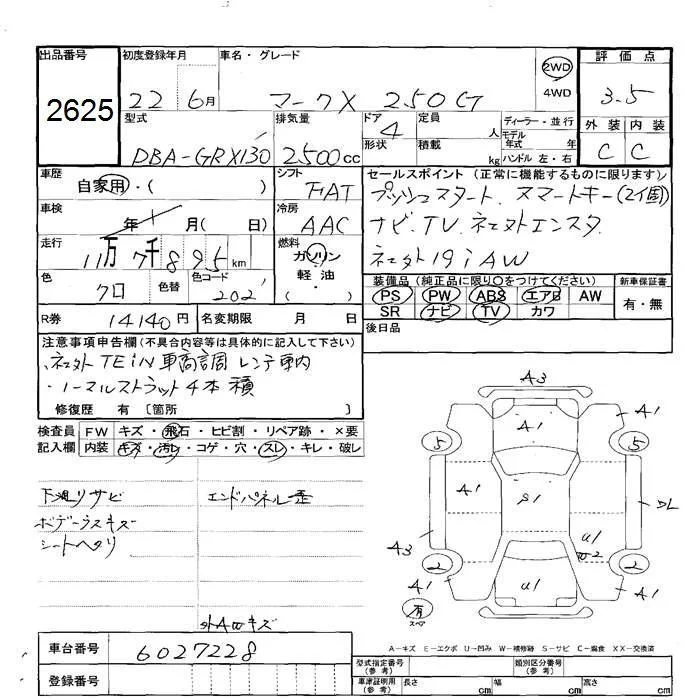 出品番号 初度登録年月 車名・グレード 2WD 4WD 評価点
2625 22 6月 マークX 250G 3.5
型式 排気量 ドア 4 定員 人 ディーラー・並行 外装 内装
形状 積載 kg モデル年式 年 ハンドル 左・右
DBA-GRX130 2500cc C C
車歴 自家用・( ) シフト FAT セールスポイント(正常に機能するものに限ります)
プッシュスタート、スマートキー(2個)
車検 年 月( 日) 冷房 AAC
ナビ.TV.ネエ外エンスタ
走行 11万7千895km 燃料 ガソリン
軽油・( )
ネエ外19iAW
色 クロ 色替 色コード 202
装備品(純正品に限り○をつけてください) 新車保証書
PS PW ABS エアB AW 有・無
SR ナビ TV カワ
R券 14140円 名変期限 月 日 後日品
注意事項申告欄(不具合内容等は具体的に記入して下さい)
ネエ外TEIN車高調
・ノーマルストラット4本積
修復歴 有〔箇所 〕
検査員記入欄 FW キズ・飛石・ヒビ割・リペア跡・×要
内装 キズ・汚レ・コゲ・穴・スレ・キレ・破レ
下廻リサビ エンドパネル歪
ボデーラスキズ
シートヘタリ
外AWキズ
A3
A1 A1
5 5
A1 S1 DL
A3 U1
2 2
A1 U1 A1
有
スペア
A-キズ E-エクボ U-凹み W-補修跡 S-サビ C-腐食 XX-交換済
車台番号 6027228
登録番号
型式指定番号(参考) 類別区分番号(参考)
車庫証明用(参考) 長さ cm 幅 cm 高さ cm